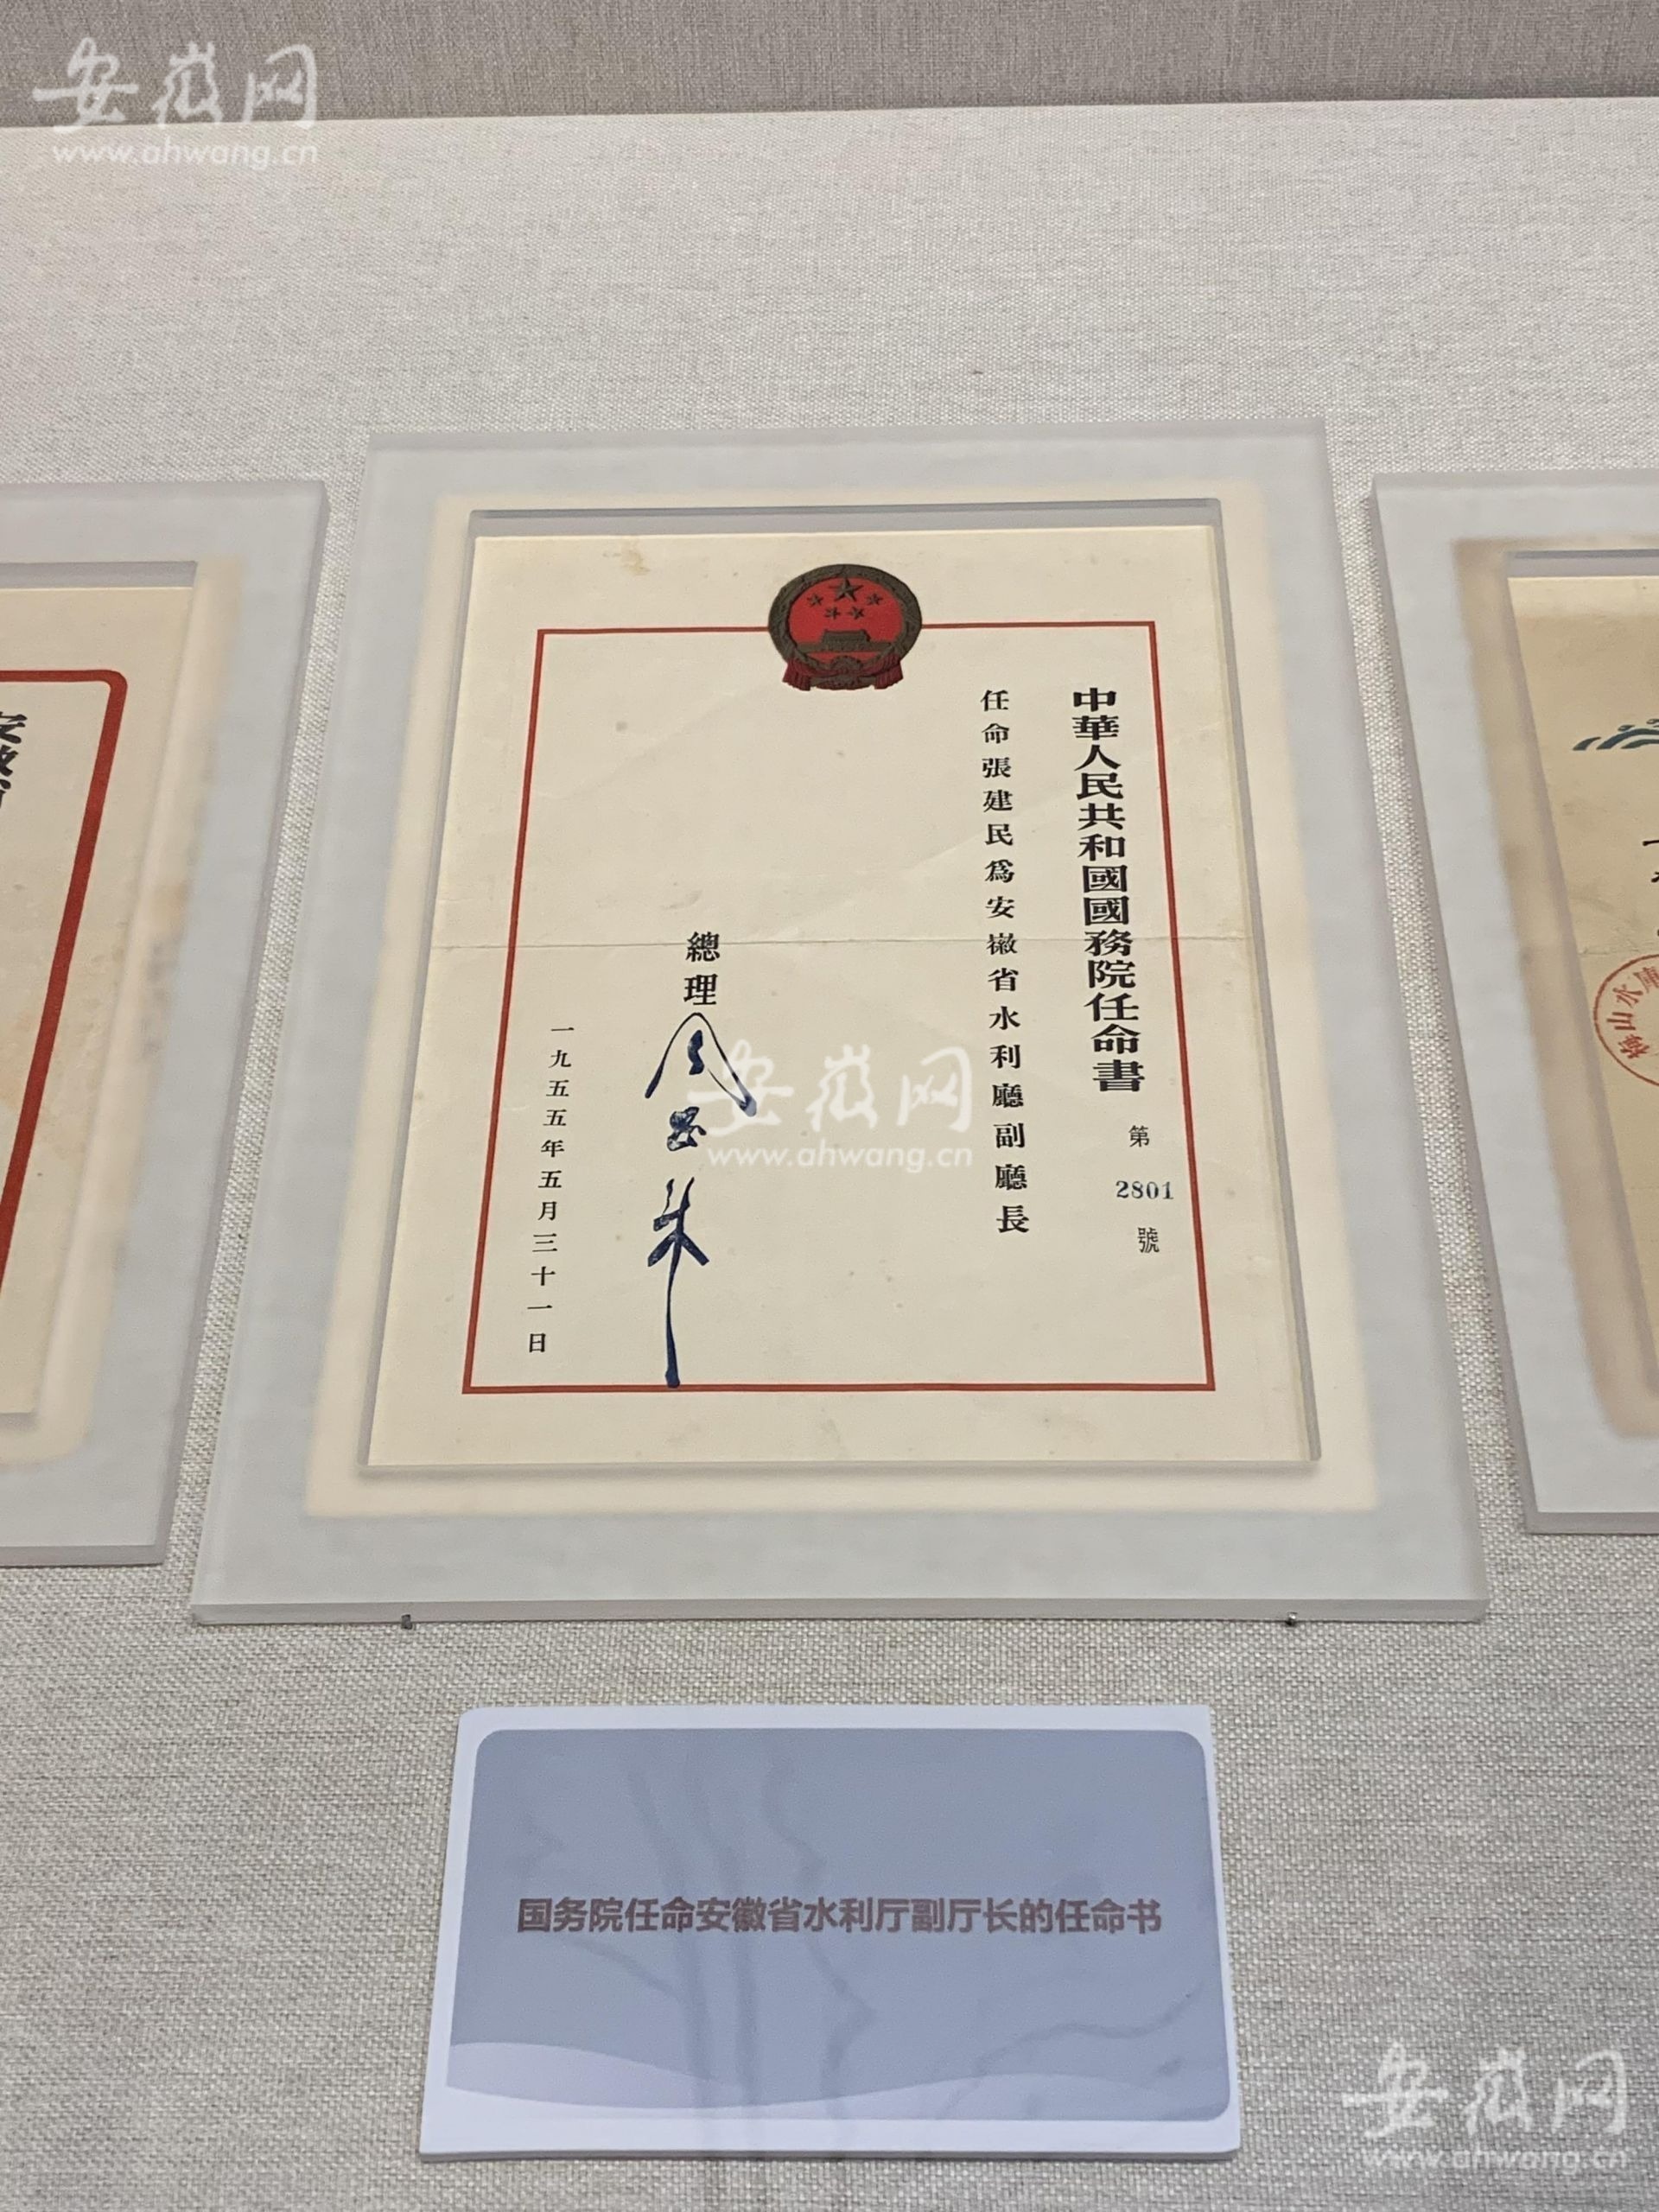 安徽网
www.ahwang.cn
中華人民共和國國務院任命書
第
2801
號
任命張建民爲安徽省水利廳副廳長
總理
周恩来
一九五五年五月三十一日
安徽网
www.ahwang.cn
梅山水庫
国务院任命安徽省水利厅副厅长的任命书
安徽网
www.ahwang.cn